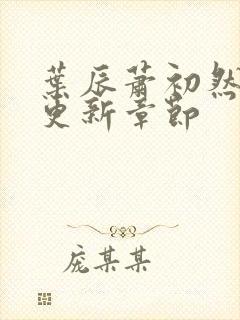 葉辰蕭初然
更新章節
庞某某